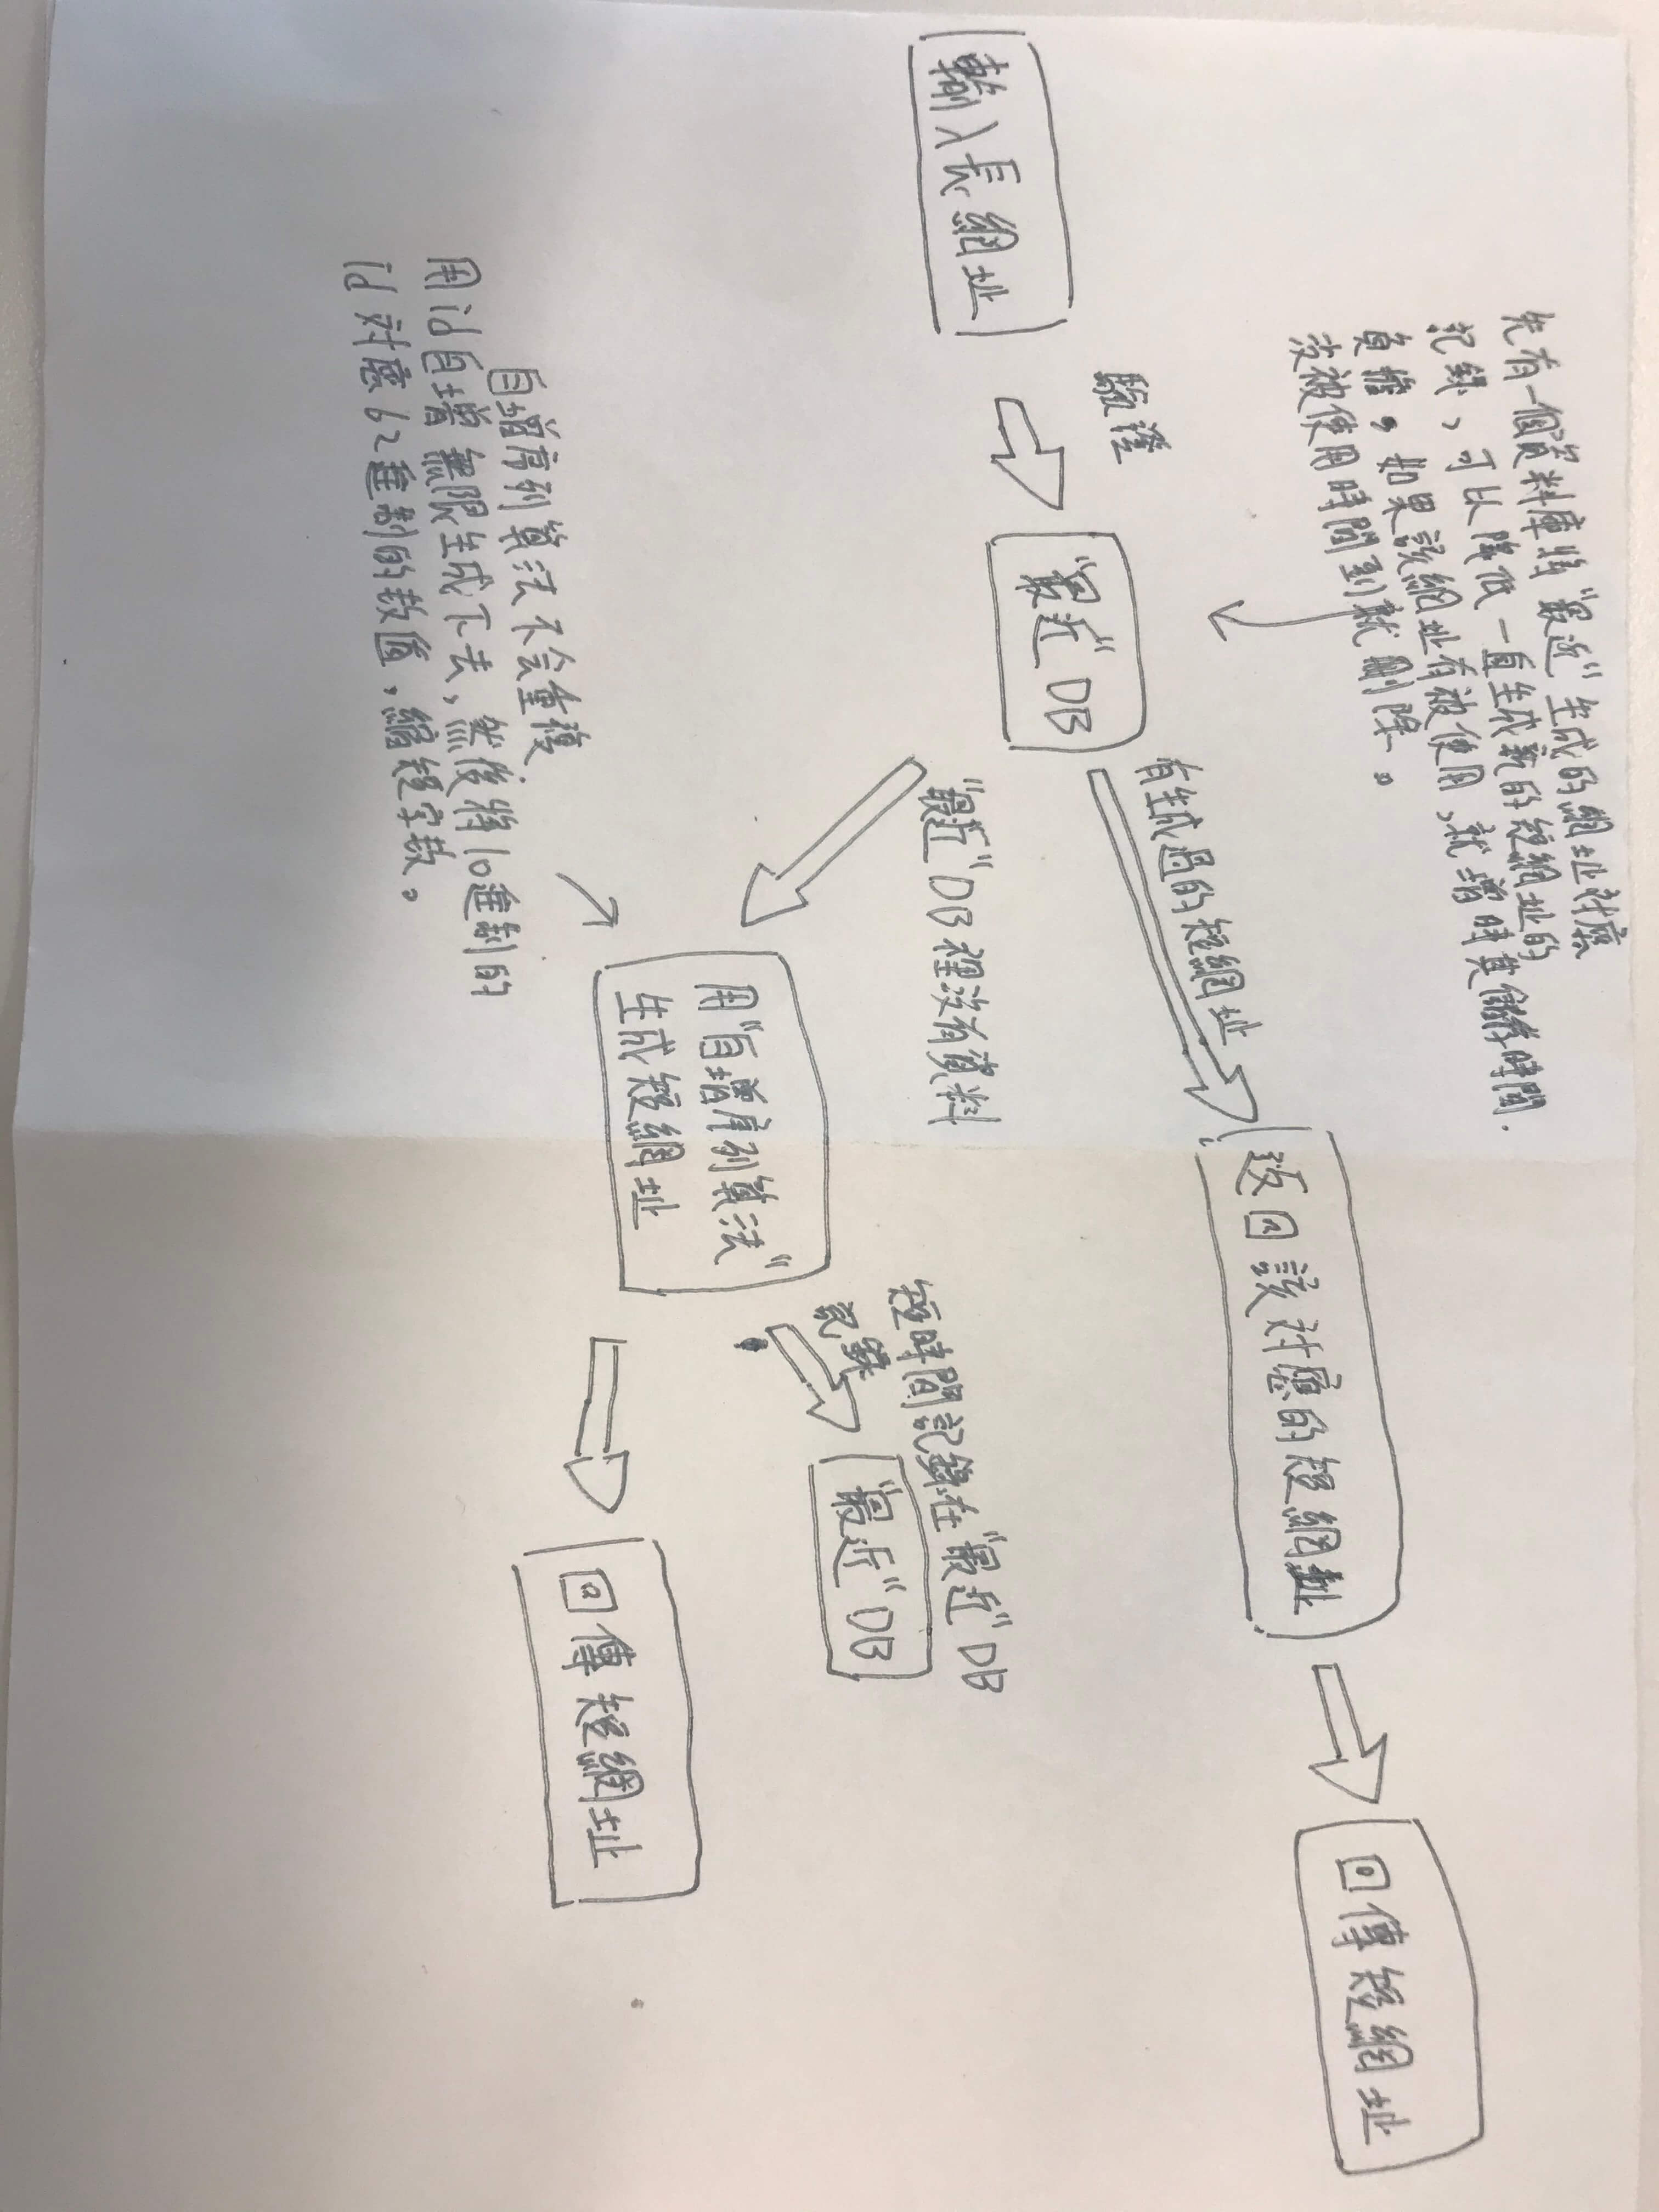 先有一個資料庫將"最近"生成的網址對應
記錄，可以降低一直生成新的短網址的
負擔。如果該網址有被使用，就增時其儲存時間.
沒被使用時間到就刪除。
輸入長網址
驗證
"最近"DB
有生成過的短網址
返回該對應的短網址
回傳短網址
"最近"DB裡沒有資料
用"自增序列算法"
生成短網址
短時間記錄在"最近"DB
記錄
"最近"DB
回傳短網址
自增序列算法不会重複
用id自增無限生成下去,然後將10進制的
id對應62進制的數值,縮短字數。